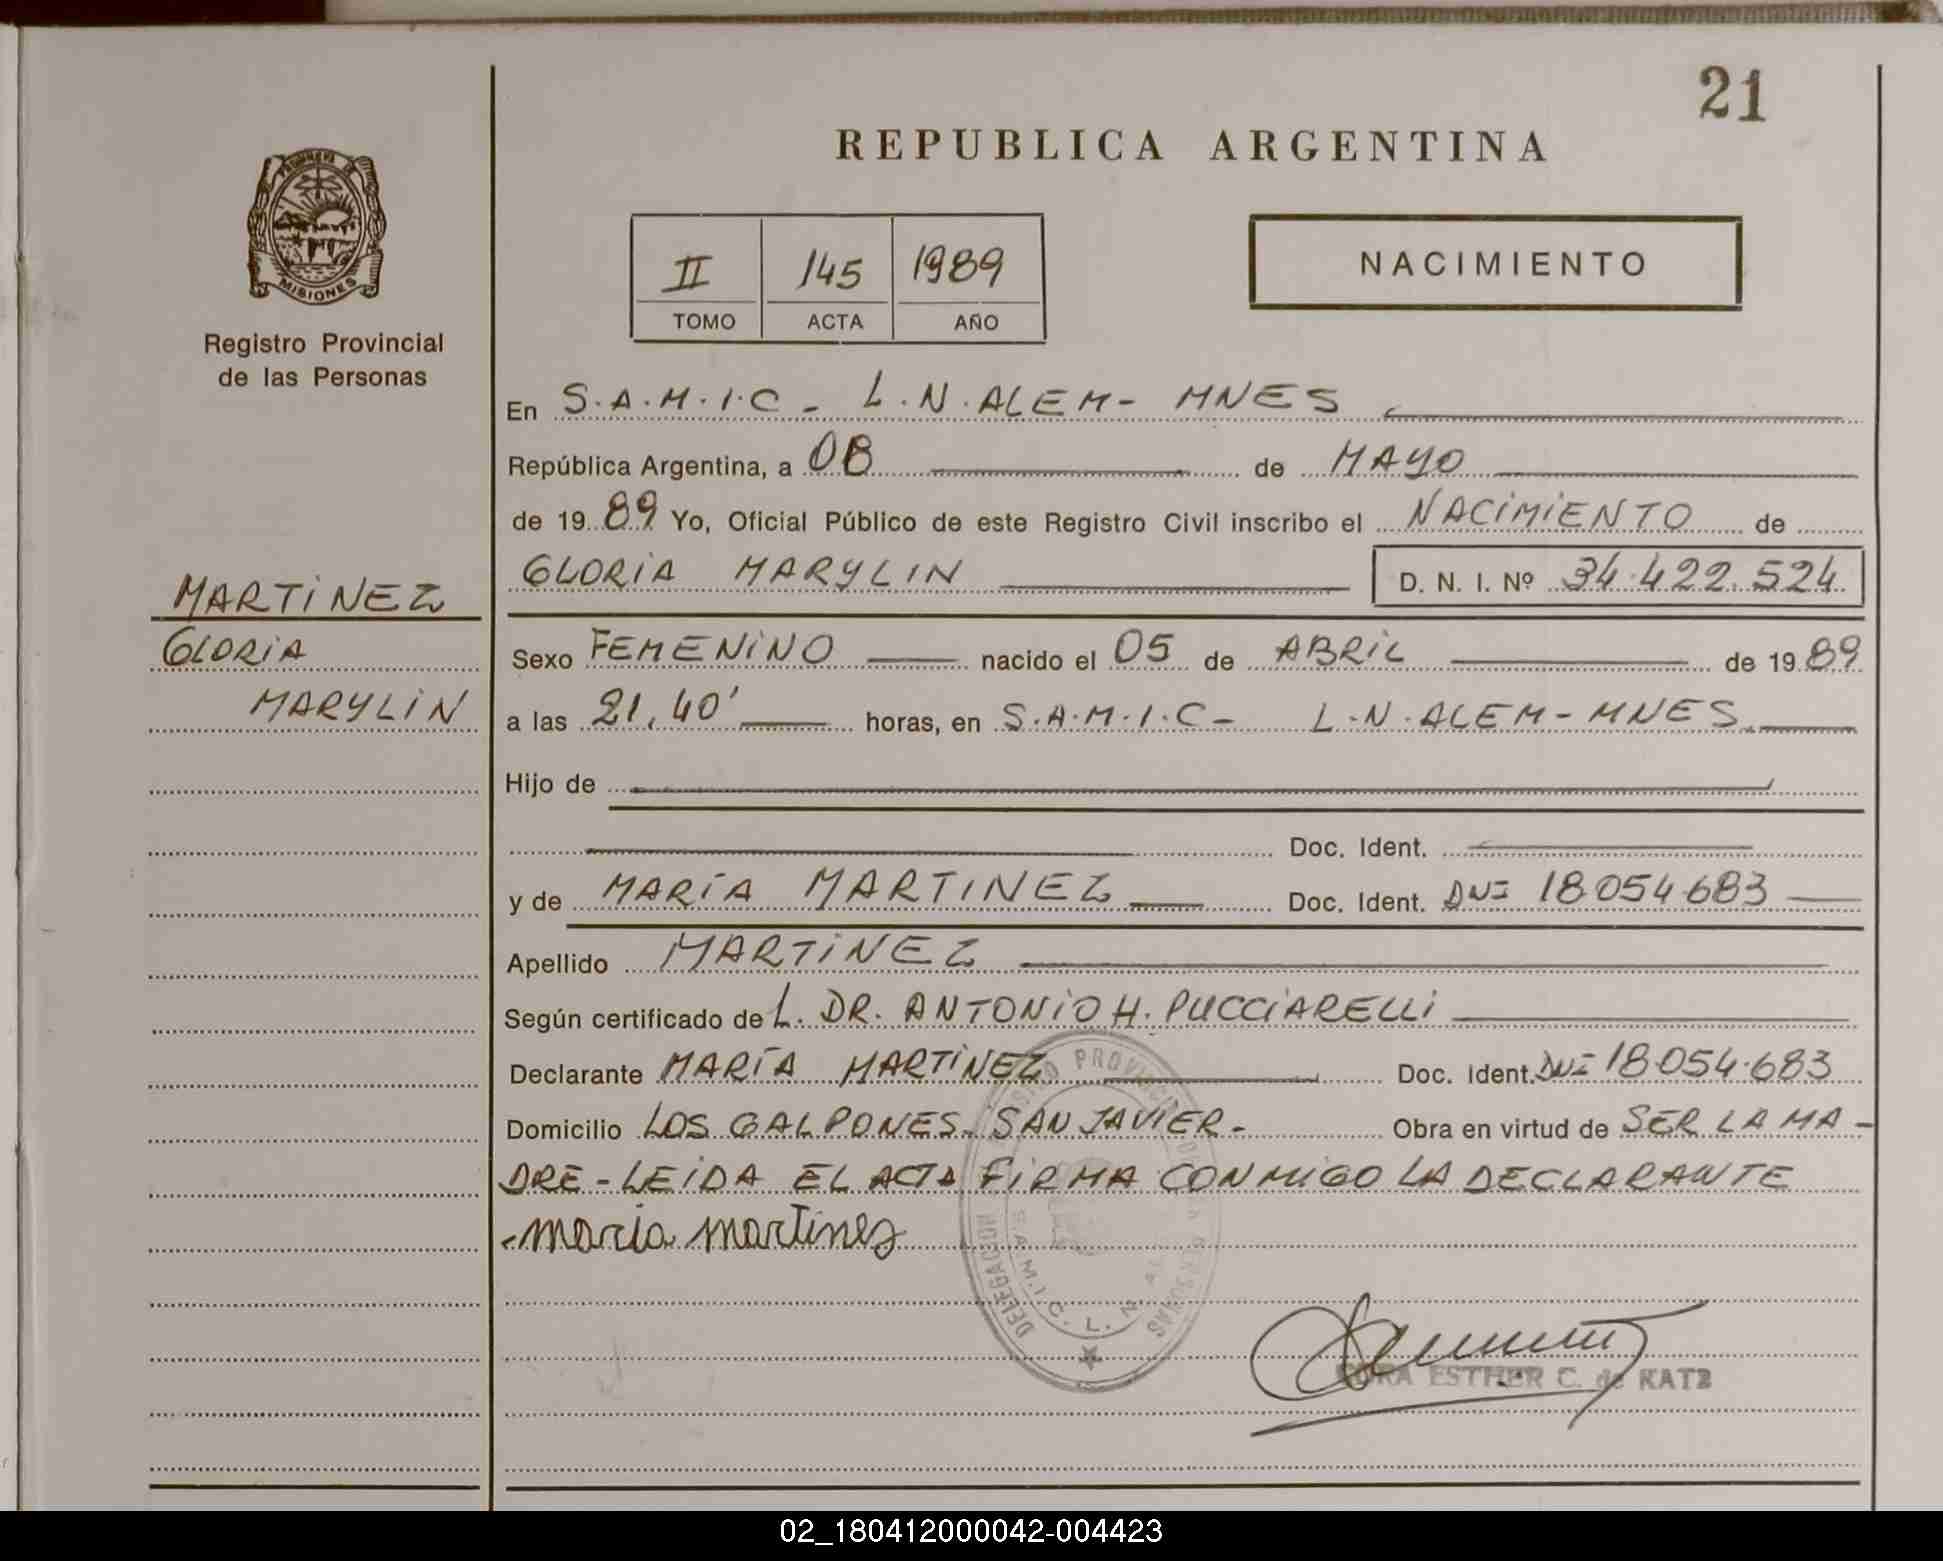 21
REPUBLICA ARGENTINA
PROVINCIA DE
MISIONES
Registro Provincial
de las Personas
II 145 1989
TOMO ACTA AÑO
NACIMIENTO
En S.A.M.I.C - L.N.ALEM- MNES
República Argentina, a 08 de MAYO
de 1989 Yo, Oficial Público de este Registro Civil inscribo el NACIMIENTO de
GLORIA MARYLIN D. N. I. Nº 34.422.524
MARTINEZ
GLORIA
MARYLIN
Sexo FEMENINO nacido el 05 de ABRIL de 1989
a las 21,40' horas, en S.A.M.I.C- L.N.ALEM-MNES
Hijo de
Doc. Ident.
y de MARÍA MARTINEZ Doc. Ident. DNI 18.054.683
Apellido MARTINEZ
Según certificado de L. DR. ANTONIO H. PUCCIARELLI
Declarante MARÍA MARTINEZ Doc. Ident. DNI 18.054.683
Domicilio LOS GALPONES- SAN JAVIER- Obra en virtud de SER LA MA-
DRE - LEIDA EL ACTA FIRMA CONMIGO LA DECLARANTE
-maria martinez
DELEGACION
S.A.M.I.C. L. N.
ESTHER C. de KATZ
02_180412000042-004423